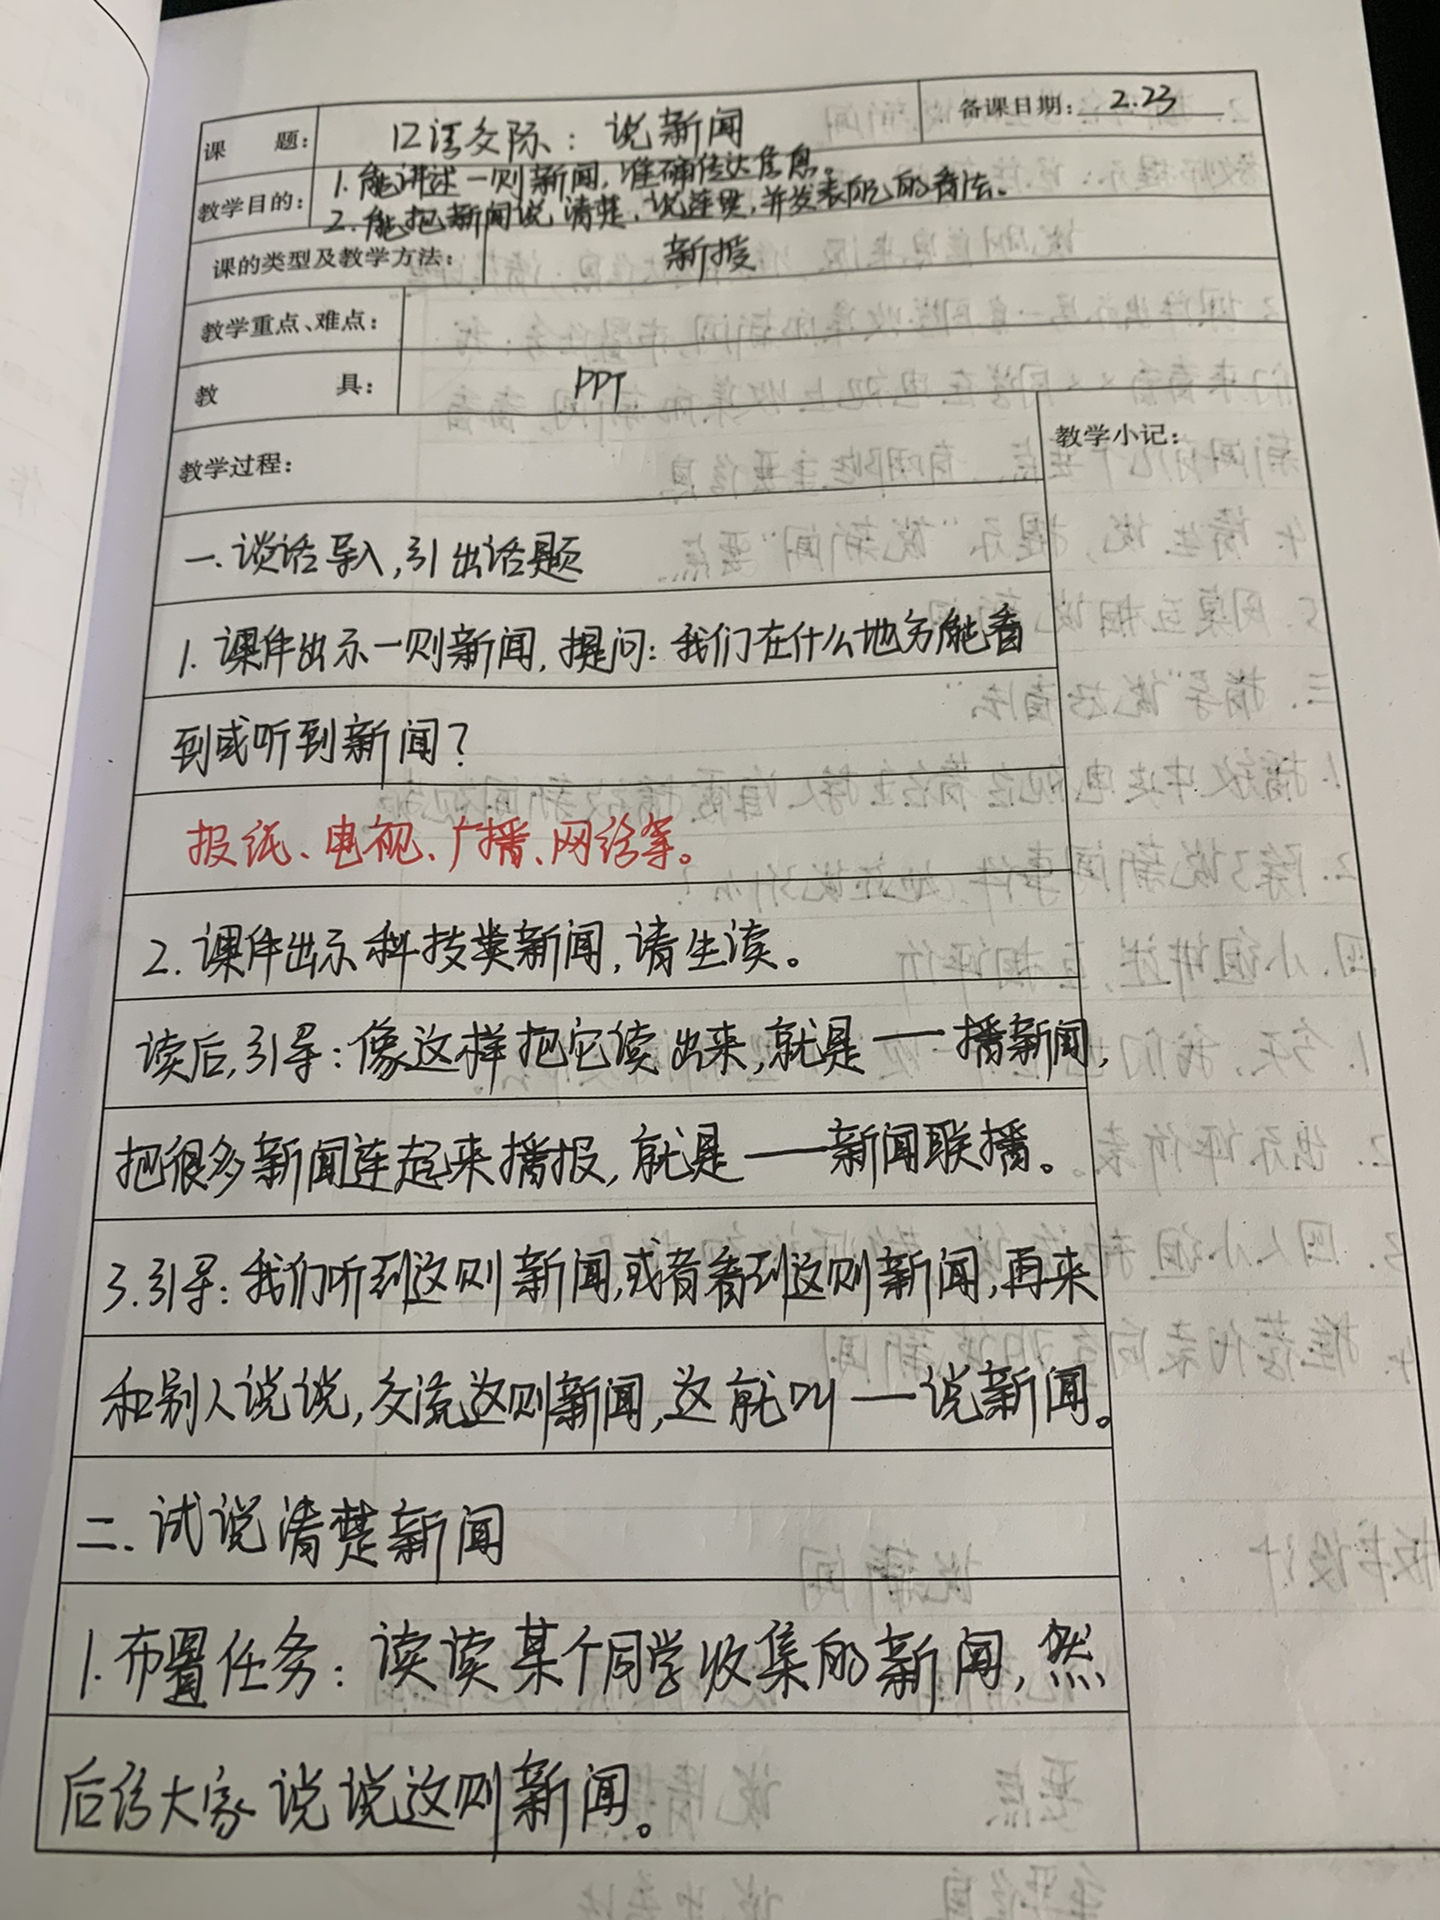 课 题： 口语交际：说新闻 备课日期：2.23
教学目的： 1.能讲述一则新闻，准确传达信息。
2.能把新闻说清楚，说连贯，并发表自己的看法。
课的类型及教学方法： 新授
教学重点、难点：
教 具： PPT
教学过程： 教学小记：
一.谈话导入，引出话题
1.课件出示一则新闻，提问：我们在什么地方能看
到或听到新闻？
报纸、电视、广播、网络等。
2.课件出示科技类新闻，请生读。
读后，引导：像这样把它读出来，就是——播新闻，
把很多新闻连起来播报，就是——新闻联播。
3.引导：我们听到这则新闻，或者看到这则新闻，再来
和别人说说，交流这则新闻，这就叫——说新闻。
二.试说清楚新闻
1.布置任务：读读某个同学收集的新闻，然
后给大家说说这则新闻。